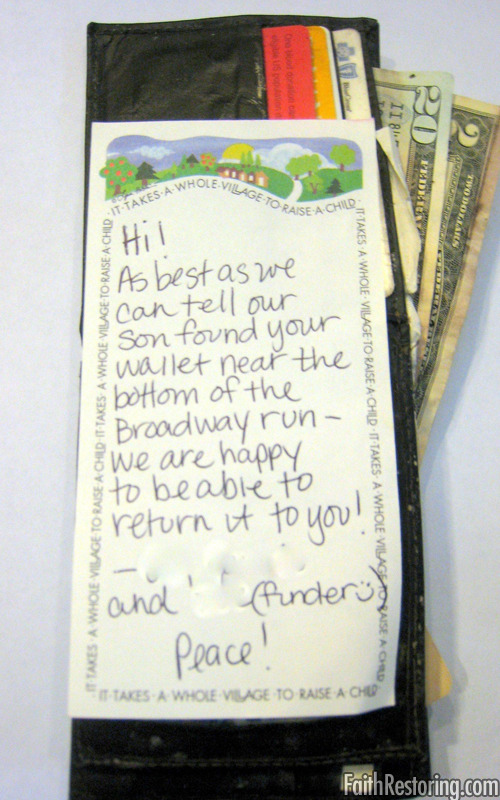 IT·TAKES·A·WHOLE·VILLAGE·TO·RAISE·A·CHILD
Hi!
As best as we
can tell our
son found your
wallet near the
bottom of the
Broadway run—
we are happy
to be able to
return it to you!
—
and (finder☺)
Peace!
IT·TAKES·A·WHOLE·VILLAGE·TO·RAISE·A·CHILD·IT·TAKES·A·WHOLE·VILLAGE·TO·RAISE·A·CHILD
IT·TAKES·A·WHOLE·VILLAGE·TO·RAISE·A·CHILD·IT·TAKES·A·WHOLE·VILLAGE·TO·RAISE·A·CHILD
IT·TAKES·A·WHOLE·VILLAGE·TO·RAISE·A·CHILD
20
2
TWO DOLLARS
FaithRestoring.com